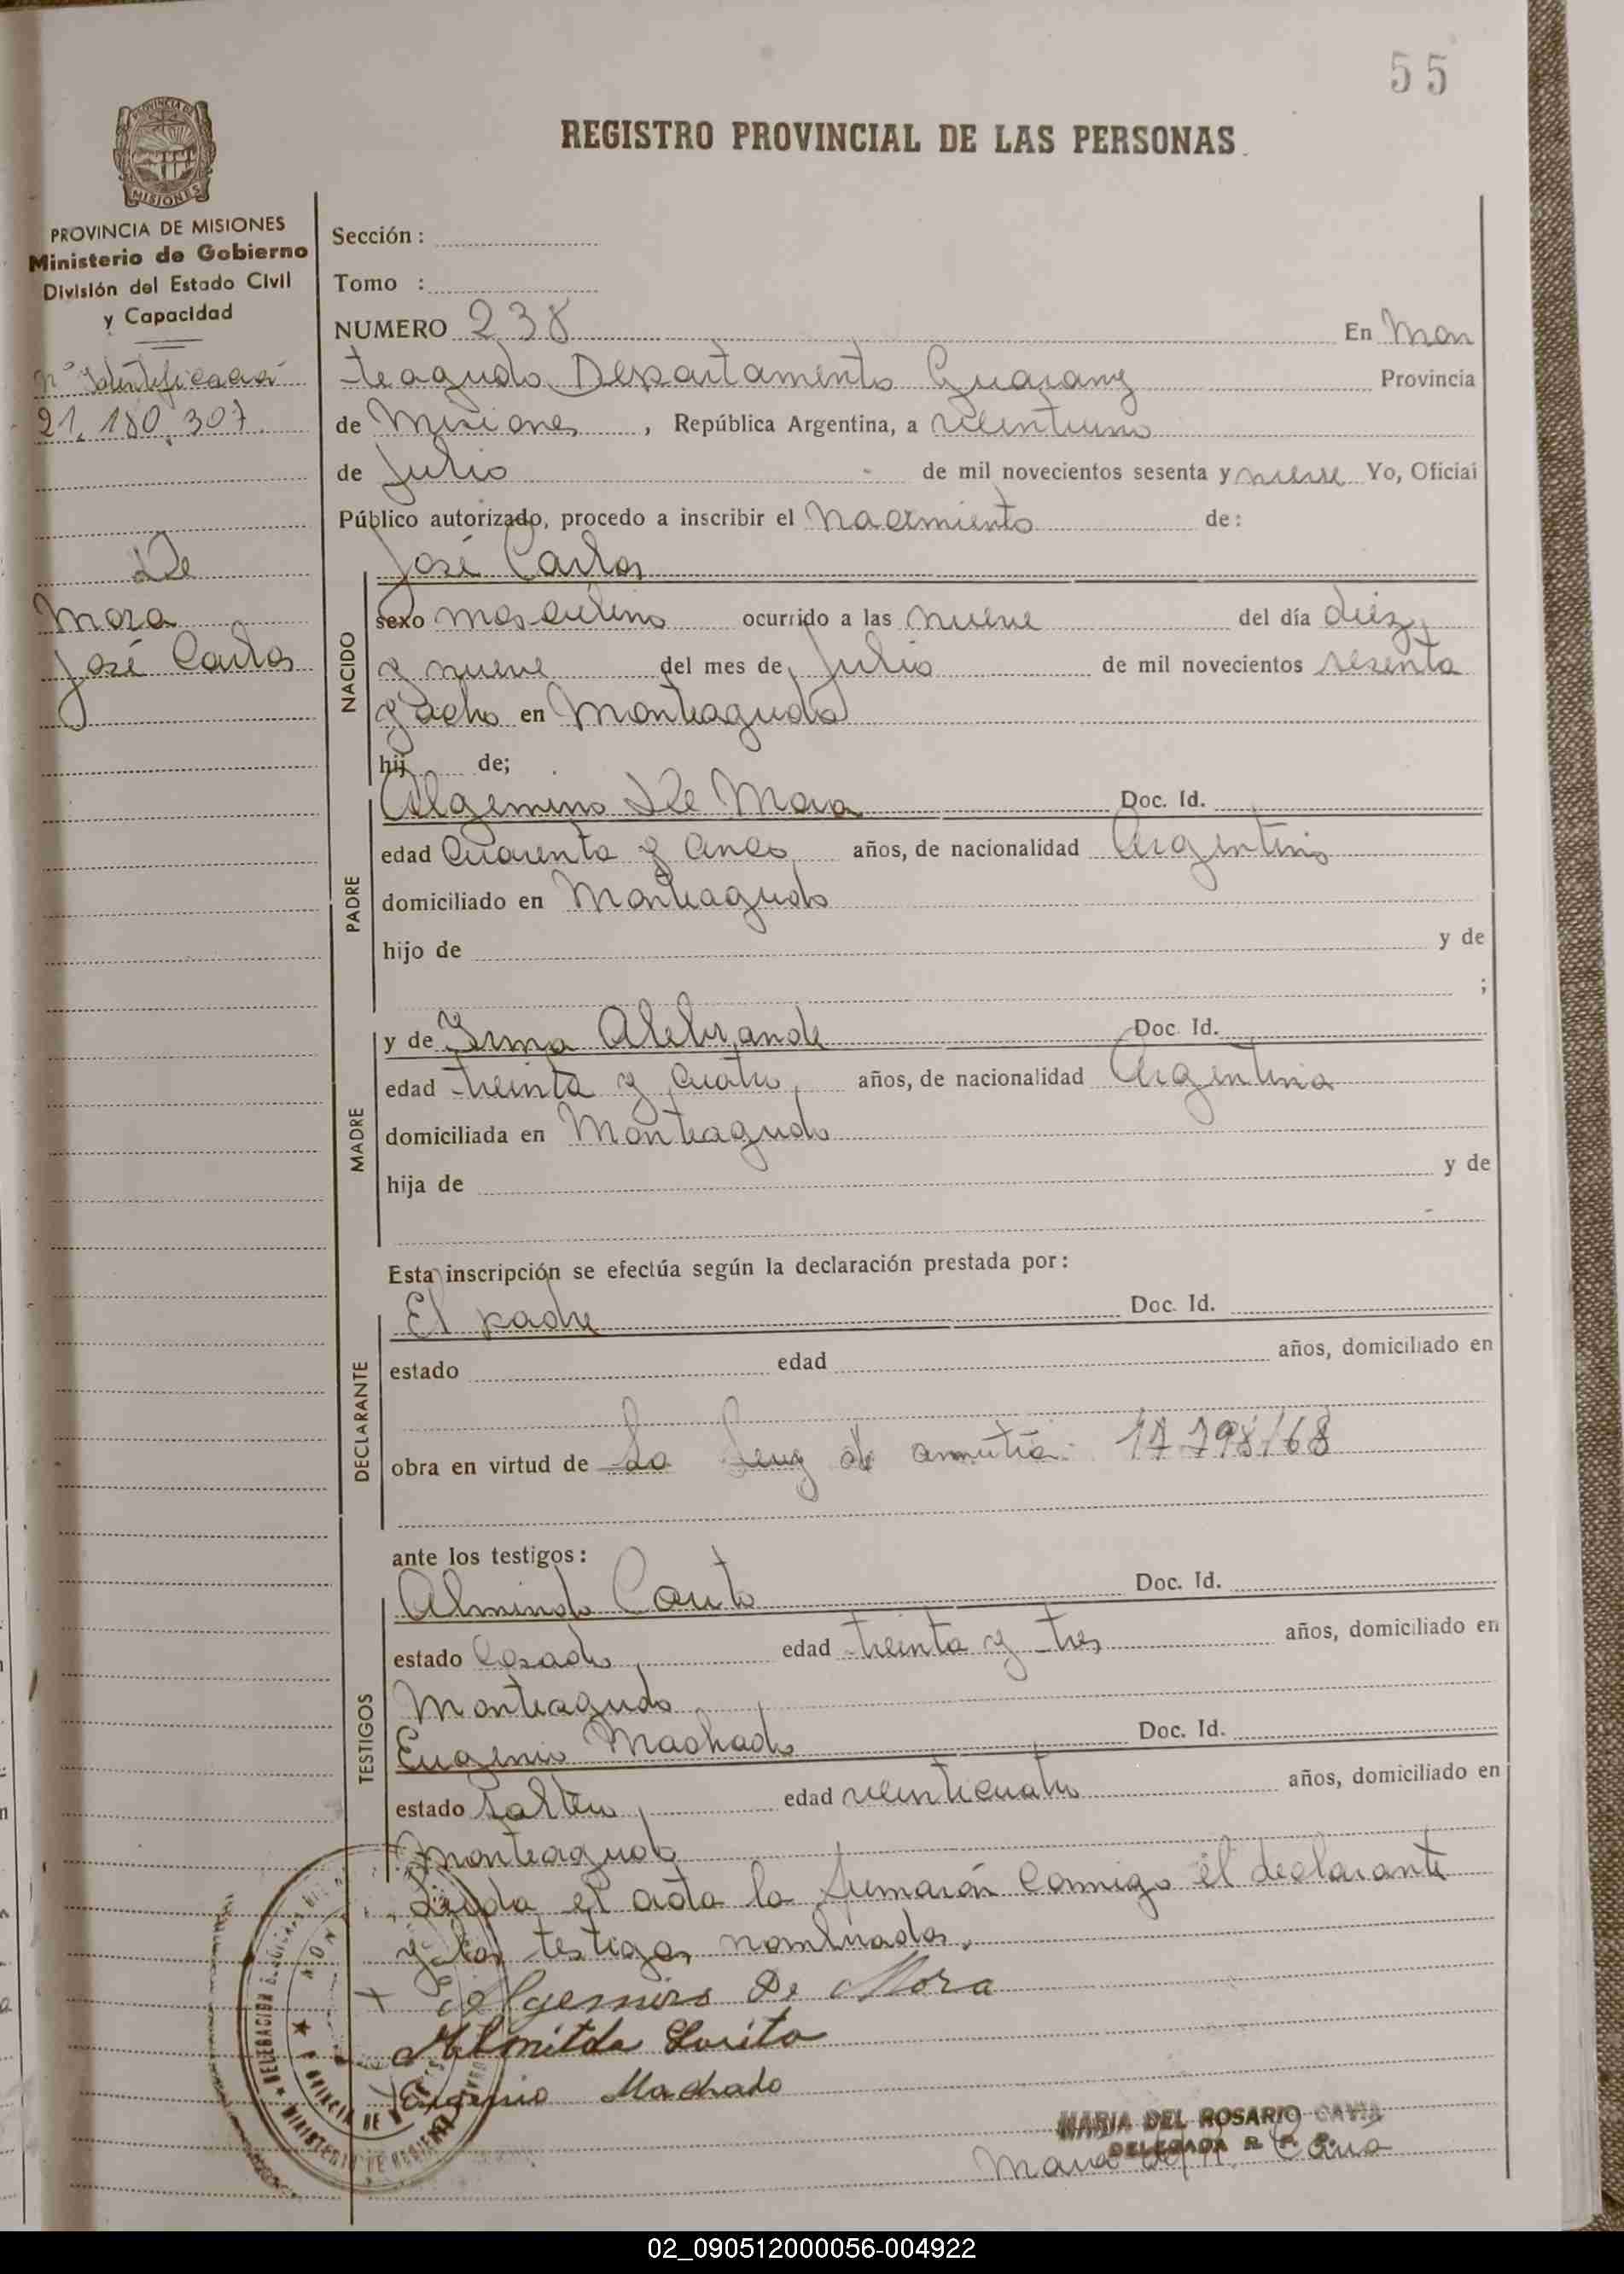 55
REGISTRO PROVINCIAL DE LAS PERSONAS
PROVINCIA DE MISIONES
Ministerio de Gobierno
División del Estado Civil
y Capacidad
Nº Identificación
21.180.307
De
Mora
José Carlos
Sección :
Tomo :
NUMERO 238 En Mon
teagudo Departamento Guarany Provincia
de Misiones, República Argentina, a veintiuno
de Julio de mil novecientos sesenta y nueve Yo, Oficial
Público autorizado, procedo a inscribir el Nacimiento de:
José Carlos
NACIDO
sexo masculino ocurrido a las nueve del día diez
y nueve del mes de Julio de mil novecientos sesenta
y ocho en Monteagudo
hij de;
PADRE
Algemiro De Mora Doc. Id.
edad Cuarenta y Cinco años, de nacionalidad Argentino
domiciliado en Monteagudo
hijo de y de
;
MADRE
y de Irma Alebrande Doc. Id.
edad treinta y cuatro, años, de nacionalidad Argentina
domiciliada en Monteagudo
hija de y de
Esta inscripción se efectúa según la declaración prestada por:
DECLARANTE
El padre Doc. Id.
estado edad años, domiciliado en
obra en virtud de La de 17798/68
ante los testigos:
TESTIGOS
Almindo Couto Doc. Id.
estado Casado, edad treinta y tres años, domiciliado en
Monteagudo
Eugenio Machado Doc. Id.
estado Soltero, edad veinticuatro años, domiciliado en
Monteagudo
Leída el acta la firmarón Conmigo el declarante
y los testigos nombrados.
Algemiro De Mora
Eugenio Machado
MARIA DEL ROSARIO CAVIA
DELEGADA R. P. P.
Maria del R. Cavia
02_090512000056-004922